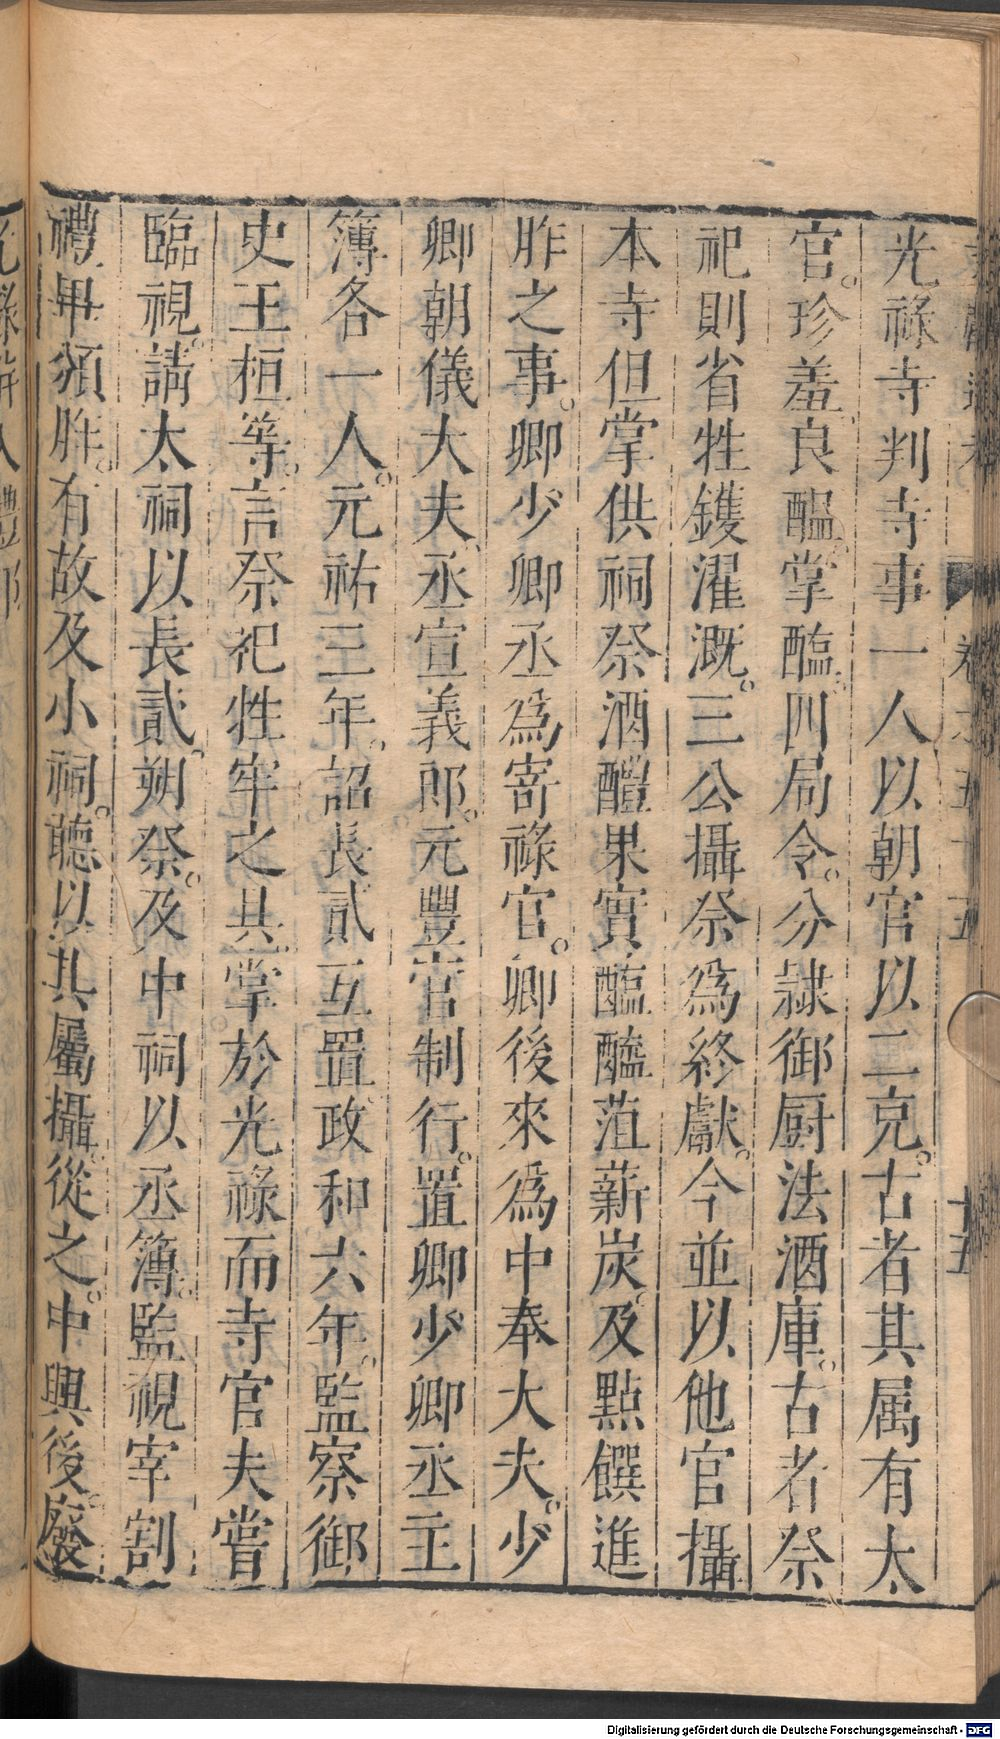 卷之五十五
十五
光祿寺判寺事一人以朝官以二充。古者其属有太
官。珍羞。良醞。掌醢四局令。分隸御厨法酒庫。古者祭
祀則省牲鑊濯溉。三公攝祭爲終獻。今並以他官攝
本寺但掌供祠祭酒醴果實醢醯菹薪炭。及點饌進
胙之事。卿少卿丞爲寄祿官。卿後來爲中奉大夫。少
卿朝儀大夫、丞宣義郎。元豐官制行。置卿少卿丞主
簿各一人。元祐三年。詔長貳互置。政和六年。監察御
史王桓等。言祭祀牲牢之具。掌於光祿而寺官夫嘗
臨視。請太祠以長貳。朔祭。及中祠以丞簿。監視宰割
禮畢頒胙。有故及小祠。聽以其屬攝。從之。中興後。廢
Digitalisierung gefördert durch die Deutsche Forschungsgemeinschaft - DFG